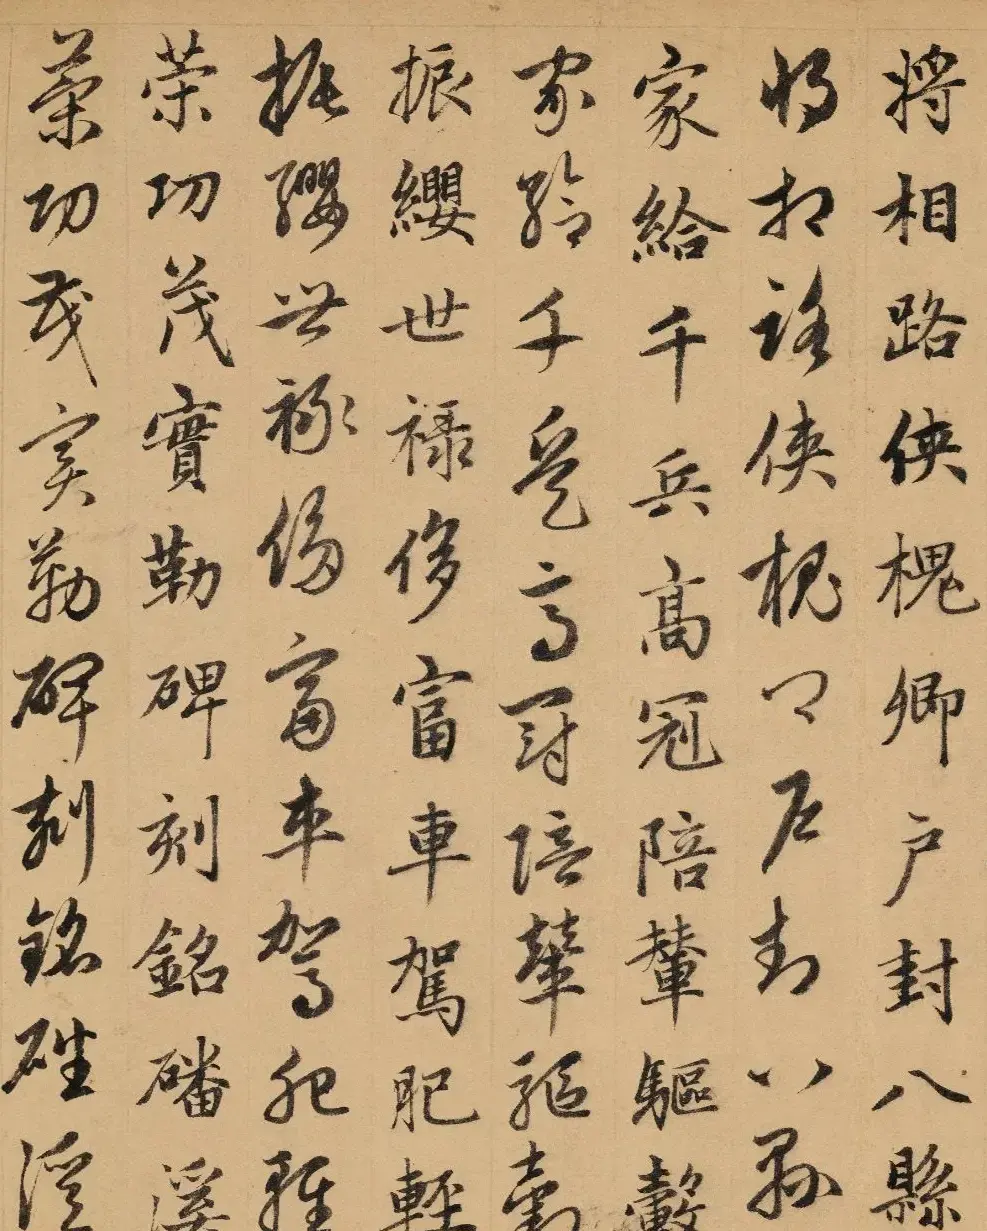 將相路俠槐卿户封八縣
將相路俠槐卿户封八縣
家給千兵高冠陪輦驅轂
家給千兵高冠陪輦驅轂
振纓世禄侈富車駕肥輕
振纓世禄侈富車駕肥輕
策功茂實勒碑刻銘磻溪
策功茂實勒碑刻銘磻溪